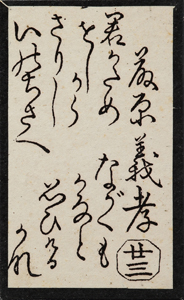 藤原義孝
廿三
君かため
をしから
さりし
いのちさへ
なかくも
かなと
思ひける
かな